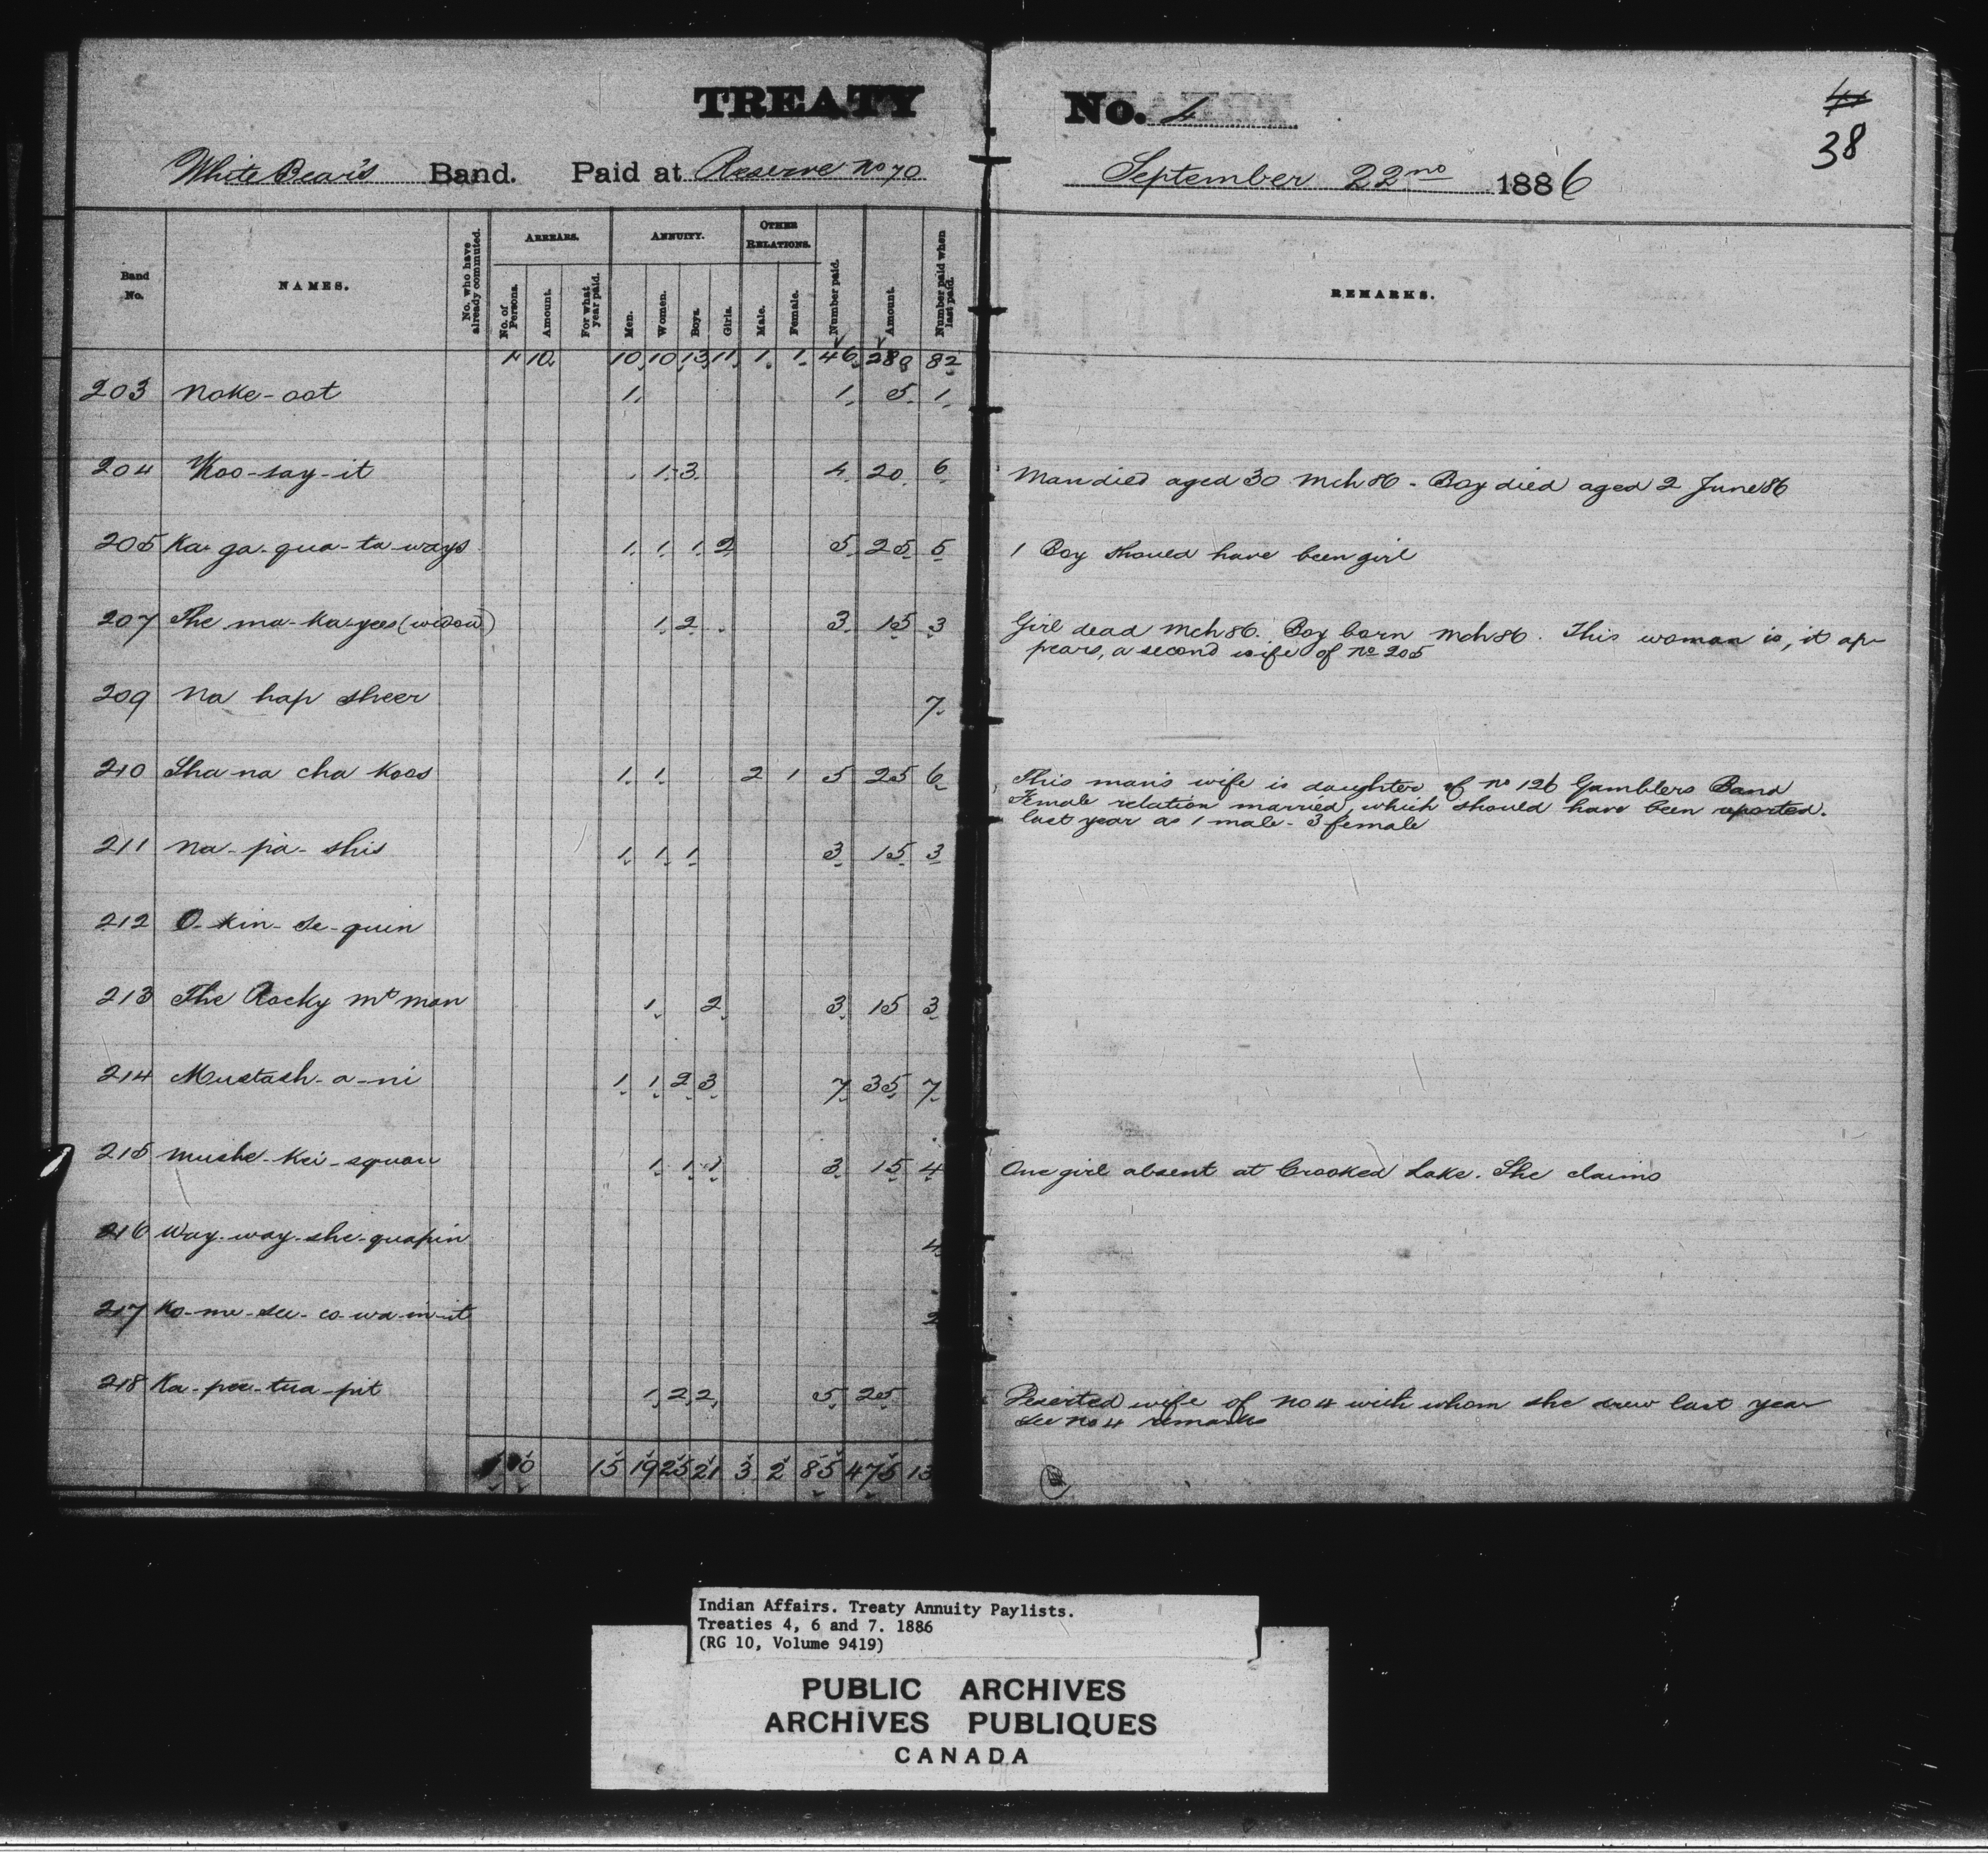 TREATY No. 4
38
White Bear's Band. Paid at Reserve No 70 September 22nd 1886
Band No. NAMES. No. who have already commuted. ARREARS. No. of Persons. Amount. For what year paid. ANNUITY. Men. Women. Boys. Girls. OTHER RELATIONS. Male. Female. Number paid. Amount. Number paid when last paid. REMARKS.
1 10 10 10 13 11 1 1 46 280 82
203 Noke-oot 1 1 5 1
204 Koo-say-it 1 3 4 20 6 Man died aged 30 Mch 86 - Boy died aged 2 June 86
205 Ka-ga-qua-ta-ways 1 1 1 2 5 25 5 1 Boy should have been girl
207 The ma-ka-yees (widow) 1 2 3 15 3 Girl dead Mch 86. Boy born Mch 86. This woman is, it ap-
pears, a second wife of No 205
209 Na hap sheer 7
210 Sha na cha koos 1 1 2 1 5 25 6 This man's wife is daughter of No 126 Gamblers Band
Female relation married, which should have been reported.
last year as 1 male - 3 female
211 Na-pa-shis 1 1 1 3 15 3
212 O-kin-se-quin
213 The Rocky Mt man 1 2 3 15 3
214 Mustash-a-ni 1 1 2 3 7 35 7
215 Mushe-kei-squau 1 1 1 3 15 4 One girl absent at Crooked Lake. She claims
216 Way-way-she-quapin 4
217 Ko-me-see-co-wa-in-it 2
218 Ka-pee-tua-pit 1 2 2 5 25 Deserted wife of No 4 with whom she drew last year
See No 4 remarks
1 10 15 19 25 21 3 2 85 475 13
Indian Affairs. Treaty Annuity Paylists.
Treaties 4, 6 and 7. 1886
(RG 10, Volume 9419)
PUBLIC ARCHIVES
ARCHIVES PUBLIQUES
CANADA